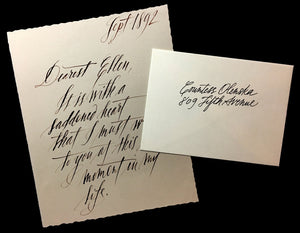 Sept 1892
Dearest Ellen,
It is with a
saddened heart
that I must
to you of this
moment in my
life.
Countess Olenska
809 Fifth Avenue